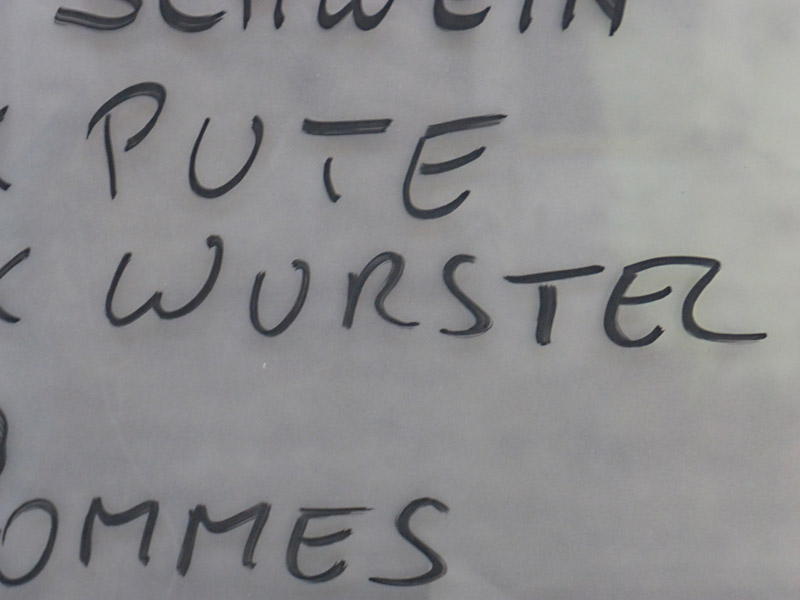 SCHWEIN
PUTE
WURSTEL
OMMES